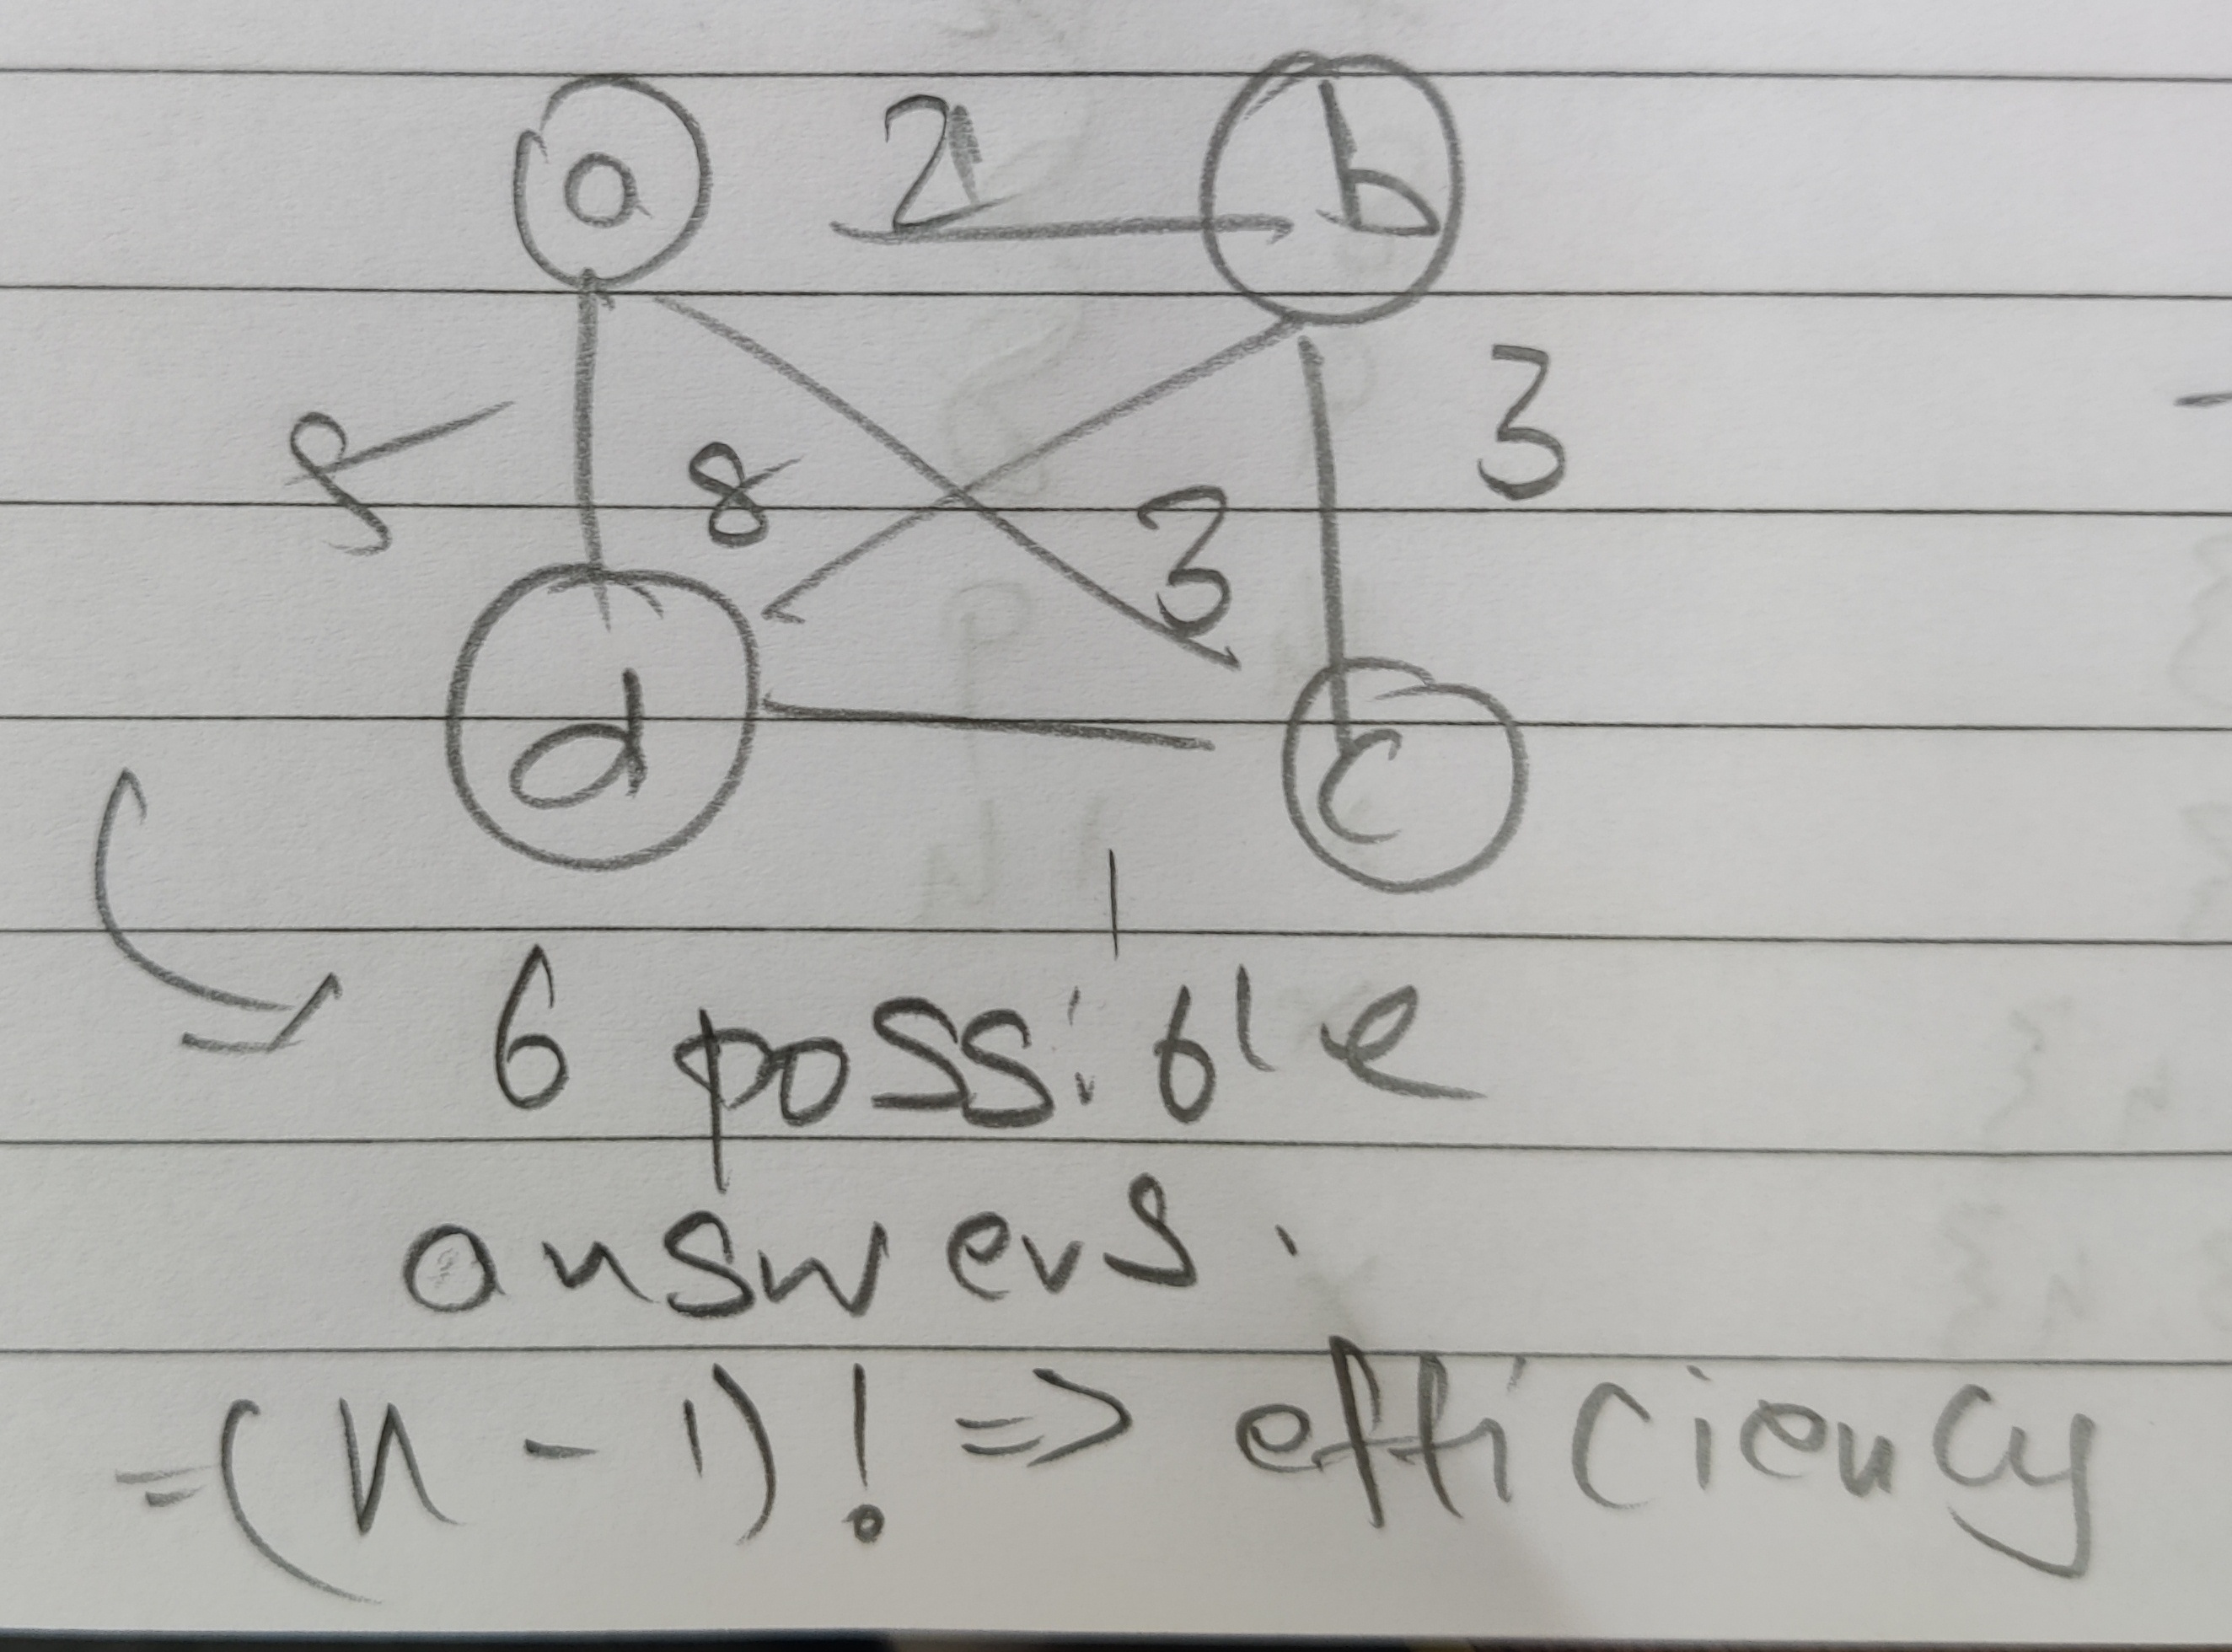 a 2 b
3
8 3
d c
1
6 possible
answers.
=(n-1)! => efficiency